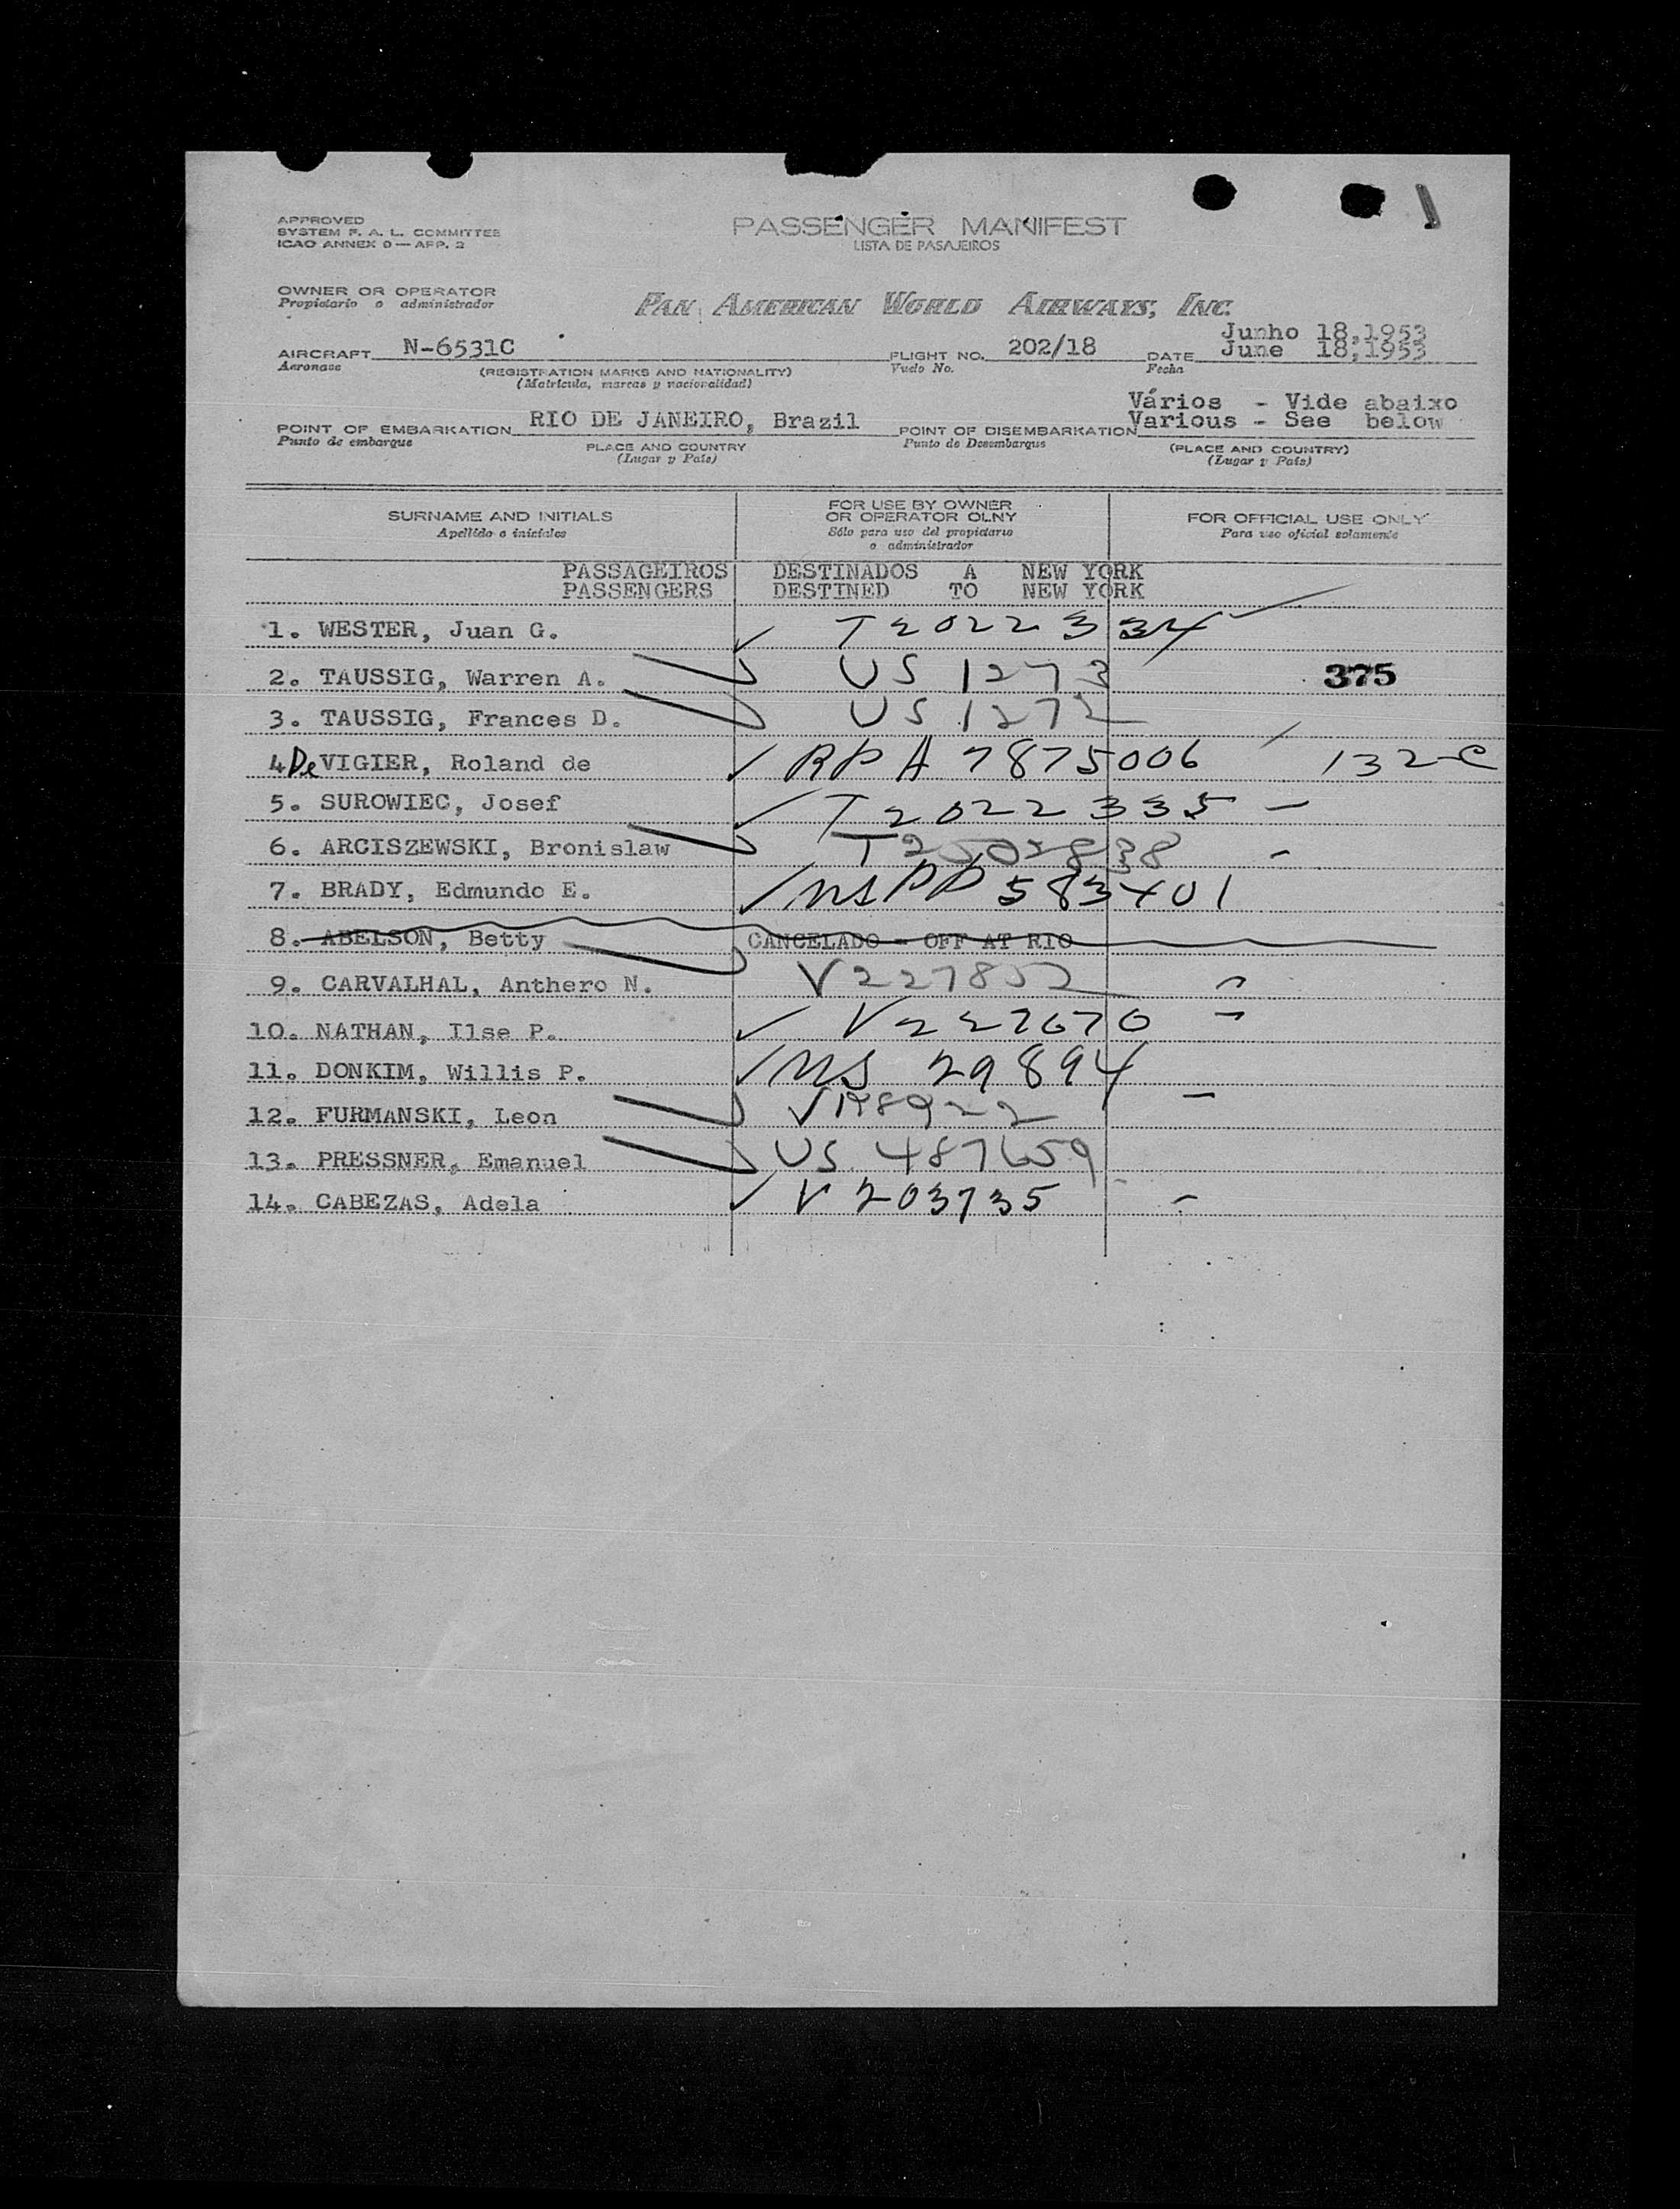 APPROVED
SYSTEM F. A. L. COMMITTEE
ICAO ANNEX 9 — APP. 2
PASSENGER MANIFEST
LISTA DE PASAJEIROS
OWNER OR OPERATOR
Propietario o administrador
PAN AMERICAN WORLD AIRWAYS, INC.
Junho 18,1953
AIRCRAFT N-6531C FLIGHT NO. 202/18 DATE June 18,1953
Aeronave (REGISTRATION MARKS AND NATIONALITY) Vuelo No. Fecha
(Matrícula, marcas y nacionalidad)
Vários - Vide abaixo
POINT OF EMBARKATION RIO DE JANEIRO, Brazil POINT OF DISEMBARKATION Various - See below
Punto de embarque PLACE AND COUNTRY Punto de Desembarque (PLACE AND COUNTRY)
(Lugar y País) (Lugar y País)
SURNAME AND INITIALS FOR USE BY OWNER OR OPERATOR OLNY FOR OFFICIAL USE ONLY
Apellido o iniciales Sólo para uso del propietario o administrador Para uso oficial solamente
PASSAGEIROS DESTINADOS A NEW YORK
PASSENGERS DESTINED TO NEW YORK
1. WESTER, Juan G. T 2022334
2. TAUSSIG, Warren A. US 1273 375
3. TAUSSIG, Frances D. US 1272
4 De VIGIER, Roland de RP A 7875006 132-C
5. SUROWIEC, Josef T 2022335
6. ARCISZEWSKI, Bronislaw
7. BRADY, Edmundo E. US PP 583401
8. ABELSON, Betty CANCELADO - OFF AT RIO
9. CARVALHAL, Anthero N. V227852
10. NATHAN, Ilse P. V 227670
11. DONKIM, Willis P. US 29894
12. FURMANSKI, Leon
13. PRESSNER, Emanuel US 487659
14. CABEZAS, Adela V 203735